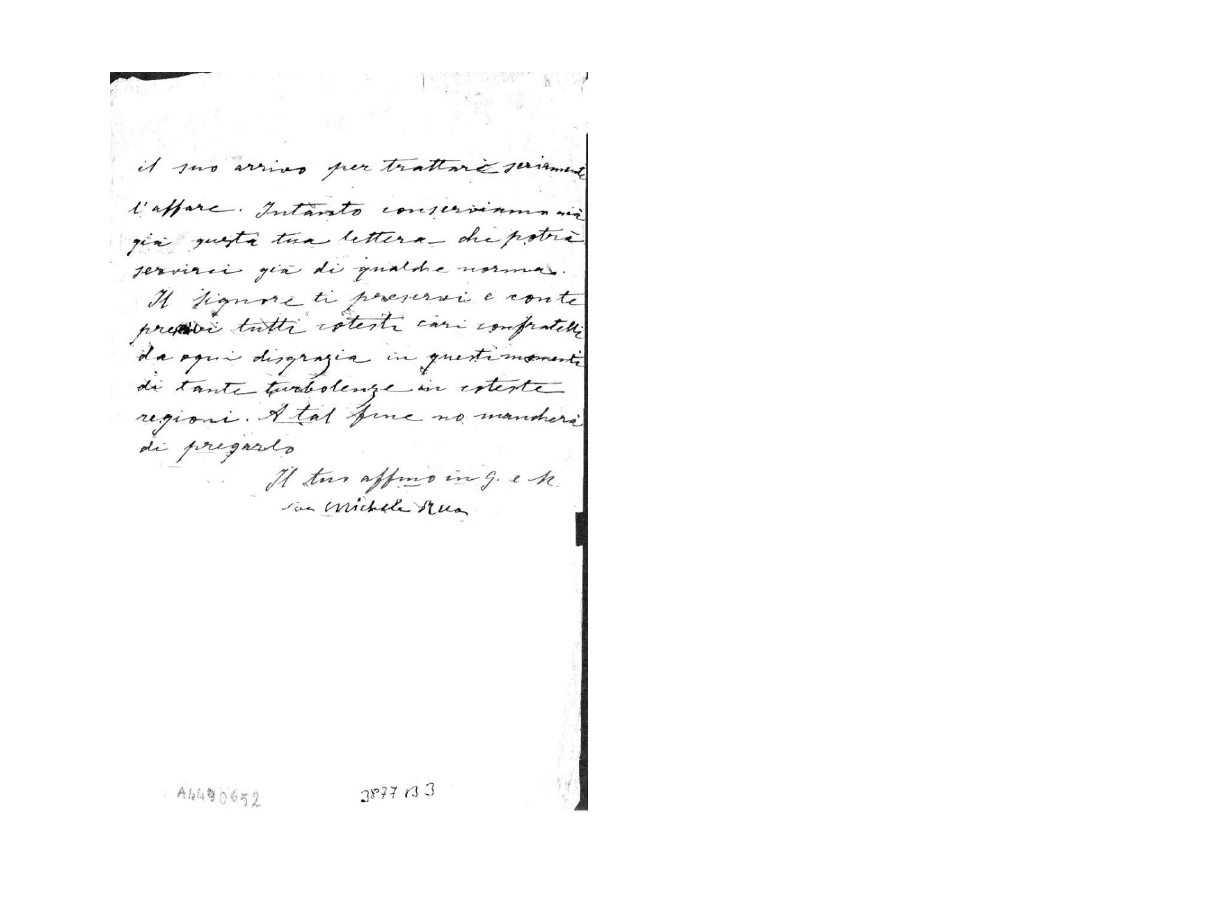 il suo arrivo per trattare seriamente
l'affare. Intanto conserviamo
già questa tua lettera che potrà
servirci già di qualche norma.
Il Signore ti preservi e con te
preservi tutti cotesti cari confratelli
da ogni disgrazia in questi momenti
di tante turbolenze in coteste
regioni. A tal fine no mancherà
di pregarlo
Il tuo affmo in G. e M.
Sac Michele Rua
A4490652 3877 B 3